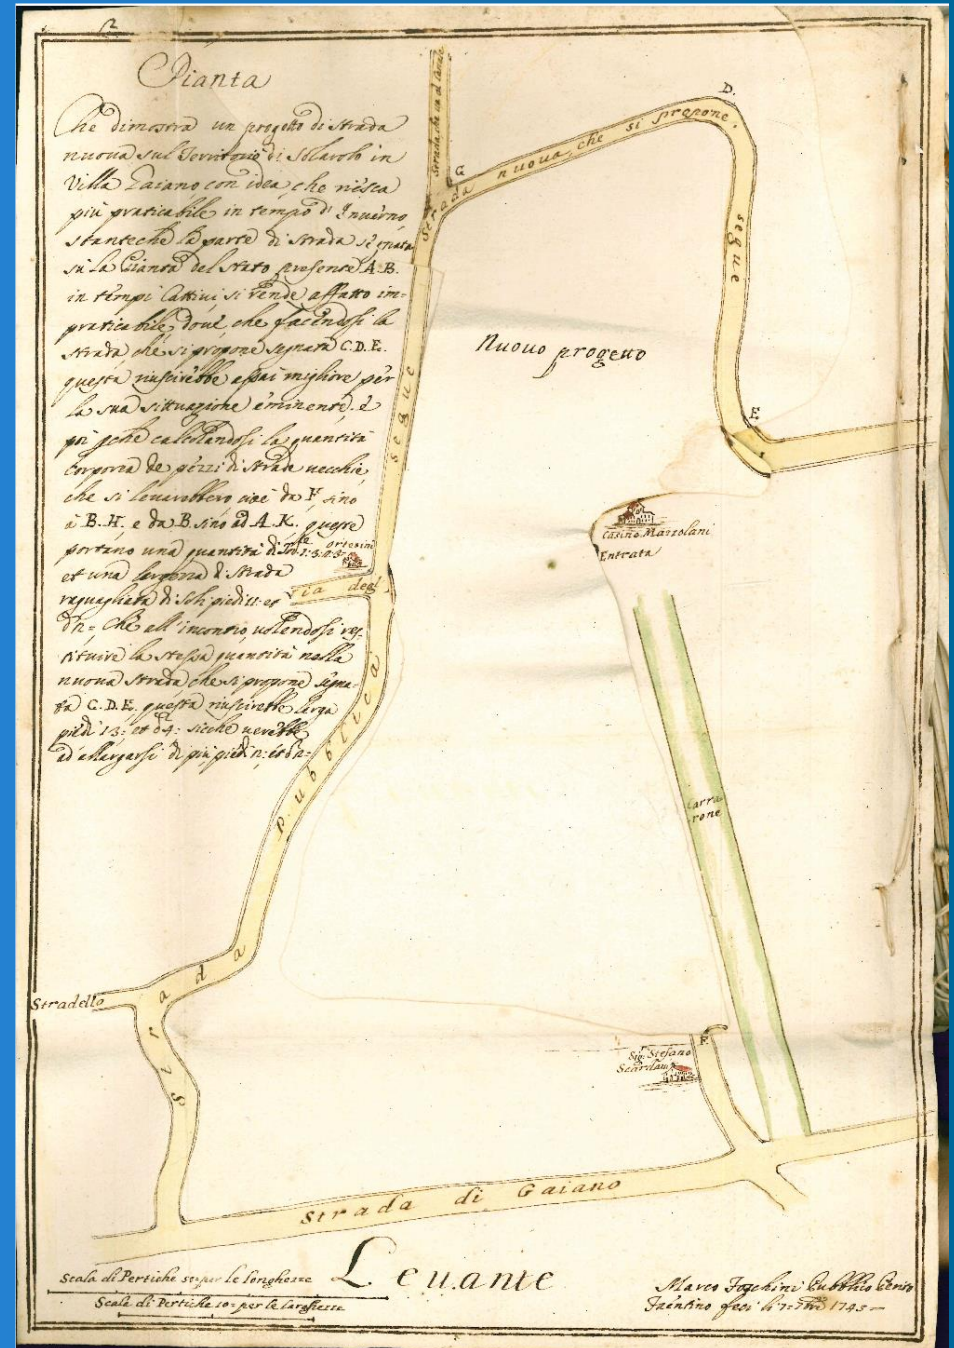 2
Pianta
Che dimostra un progetto di Strada
nuova sul Territorio di Solarolo in
Villa Gaiano con idea, che riesca
più praticabile in tempo d'Inverno
stanteche la parte di Strada segnata
sù la Pianta del stato presente A.B.
in tempi Cattivi, si rende affatto im=
praticabile, dove, che facendosi la
strada, che si propone segnata C.D.E.
questa riuscirebbe assai migliore per
la sua situazione eminente, e
poi che calcolandosi la quantità
corporea de pezzi di Strada vecchie,
che si levarebbero cioè da F, sino
à B.H. e da B. sino ad A.K. queste
portano una quantità di
et una largezza di Strada
raguagliata di piedi 11: et
Che all'incontro, volendosi res-
tituire la stessa quantità nella
nuova Strada che si propone segna-
ta C.D.E. questa riuscirebbe larga
piedi 13: et 4: sicche verebbe
ad allargarsi di più piedi
Strada che va al
G
Strada nuova, che si propone.
D.
segue
E
Nuovo progetto
segue
Casino Mazzolani
Entrata
Via degl'
ortesini
Carra
rone
Strada Pubblica
Stradello
F
Sig: Stefano
Strada di Gaiano
Levante
Scala di Pertiche per le longhezze
Scala di Pertiche 10: per le largezze
Marco Foschini Pubblico Perito
Faentino feci li 1745